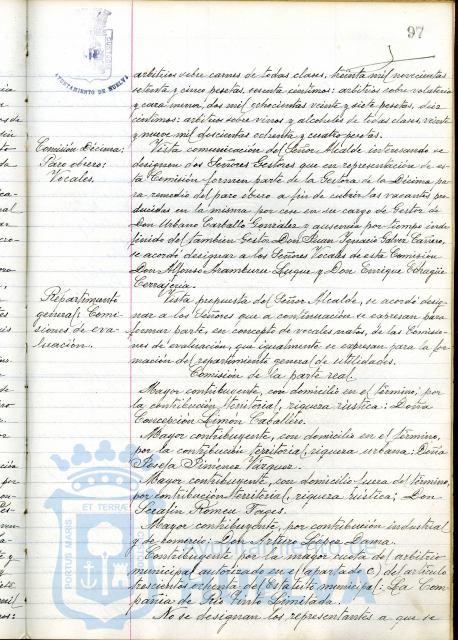 97
AYUNTAMIENTO DE HUELVA
arbitrios sobre carnes de todas clases, treinta mil novecientas
setenta y cinco pesetas, cincuenta céntimos: arbitrios sobre volatería
y caza menor, dos mil ochocientas veinte y siete pesetas, diez
céntimos: arbitrios sobre vinos y alcoholes de todas clases, veinte
y nueve mil doscientas ochenta y cuatro pesetas.
Comisión Décima:
Paro obrero:
Vocales.
Vista comunicación del Señor Alcalde interesando se
designen dos Señores Gestores que en representación de es-
ta Comisión formen parte de la Gestora de la Décima pa-
ra remedio del paro obrero a fin de cubrir las vacantes pro-
ducidas en la misma por cese en su cargo de Gestor de
Don Urbano Carballo González y ausencia por tiempo inde-
finido del tambien Gestor Don Juan Ignacio Galvez Cañero,
se acordó designar a los Señores Vocales de esta Comisión
Don Alfonso Aramburu Luque y Don Enrique Echagüe
Repartimiento
general: Comi-
siones de eva-
luación.
Vista propuesta del Señor Alcalde, se acordó desig-
nar a los Señores que a continuación se expresan para
formar parte, en concepto de vocales natos, de las Comisio-
nes de evaluación, que igualmente se expresan para la for-
mación del repartimiento general de utilidades.
Comisión de la parte real.
Mayor contribuyente, con domicilio en el término, por
la contribución territorial, riqueza rústica: Doña
Concepción Limón Caballero.
Mayor contribuyente, con domicilio en el término,
por la contribución territorial, riqueza urbana: Doña
Josefa Jiménez Vázquez.
Mayor contribuyente, con domicilio fuera del término,
por contribución territorial, riqueza rústica; Don
Serafín Romeu Fages.
Mayor contribuyente, por contribución industrial
y de comercio: Don Arturo López Dama.
Contribuyente por la mayor cuota del arbitrio
municipal autorizado en el apartado c) del artículo
trescientos ochenta del Estatuto municipal: La Com-
pañia de Rio Tinto Limitada.
No se designan los representantes a que se
PORTUS MARIS ET TERRAE